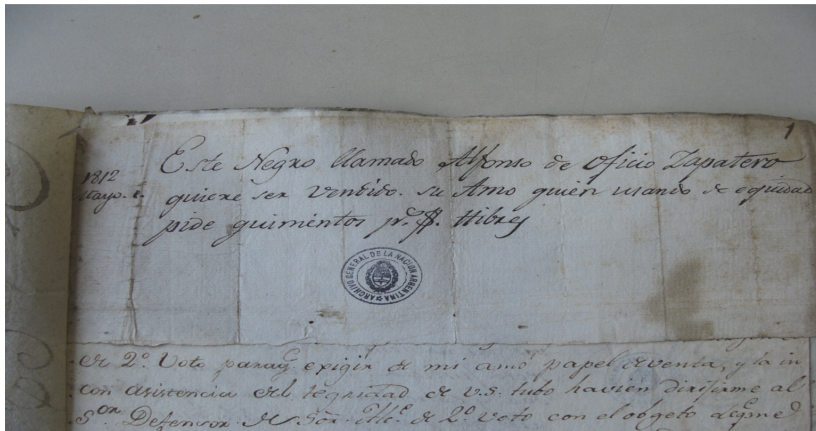 1
1812
Mayo. 1.
Este Negro llamado Alfonso de oficio Zapatero
quiere ser vendido. su Amo quien usando de equidad
pide quimentos pr. Hibres
ARCHIVO GENERAL DE LA NACION ARGENTINA
de 2º. Voto paraq exigir de mi amo papel deventa, y la in
con asistencia del de V.S. tubo havien dirijirme al
Sor. Defensor de Sor. Alle. de 2º. voto con el obgeto